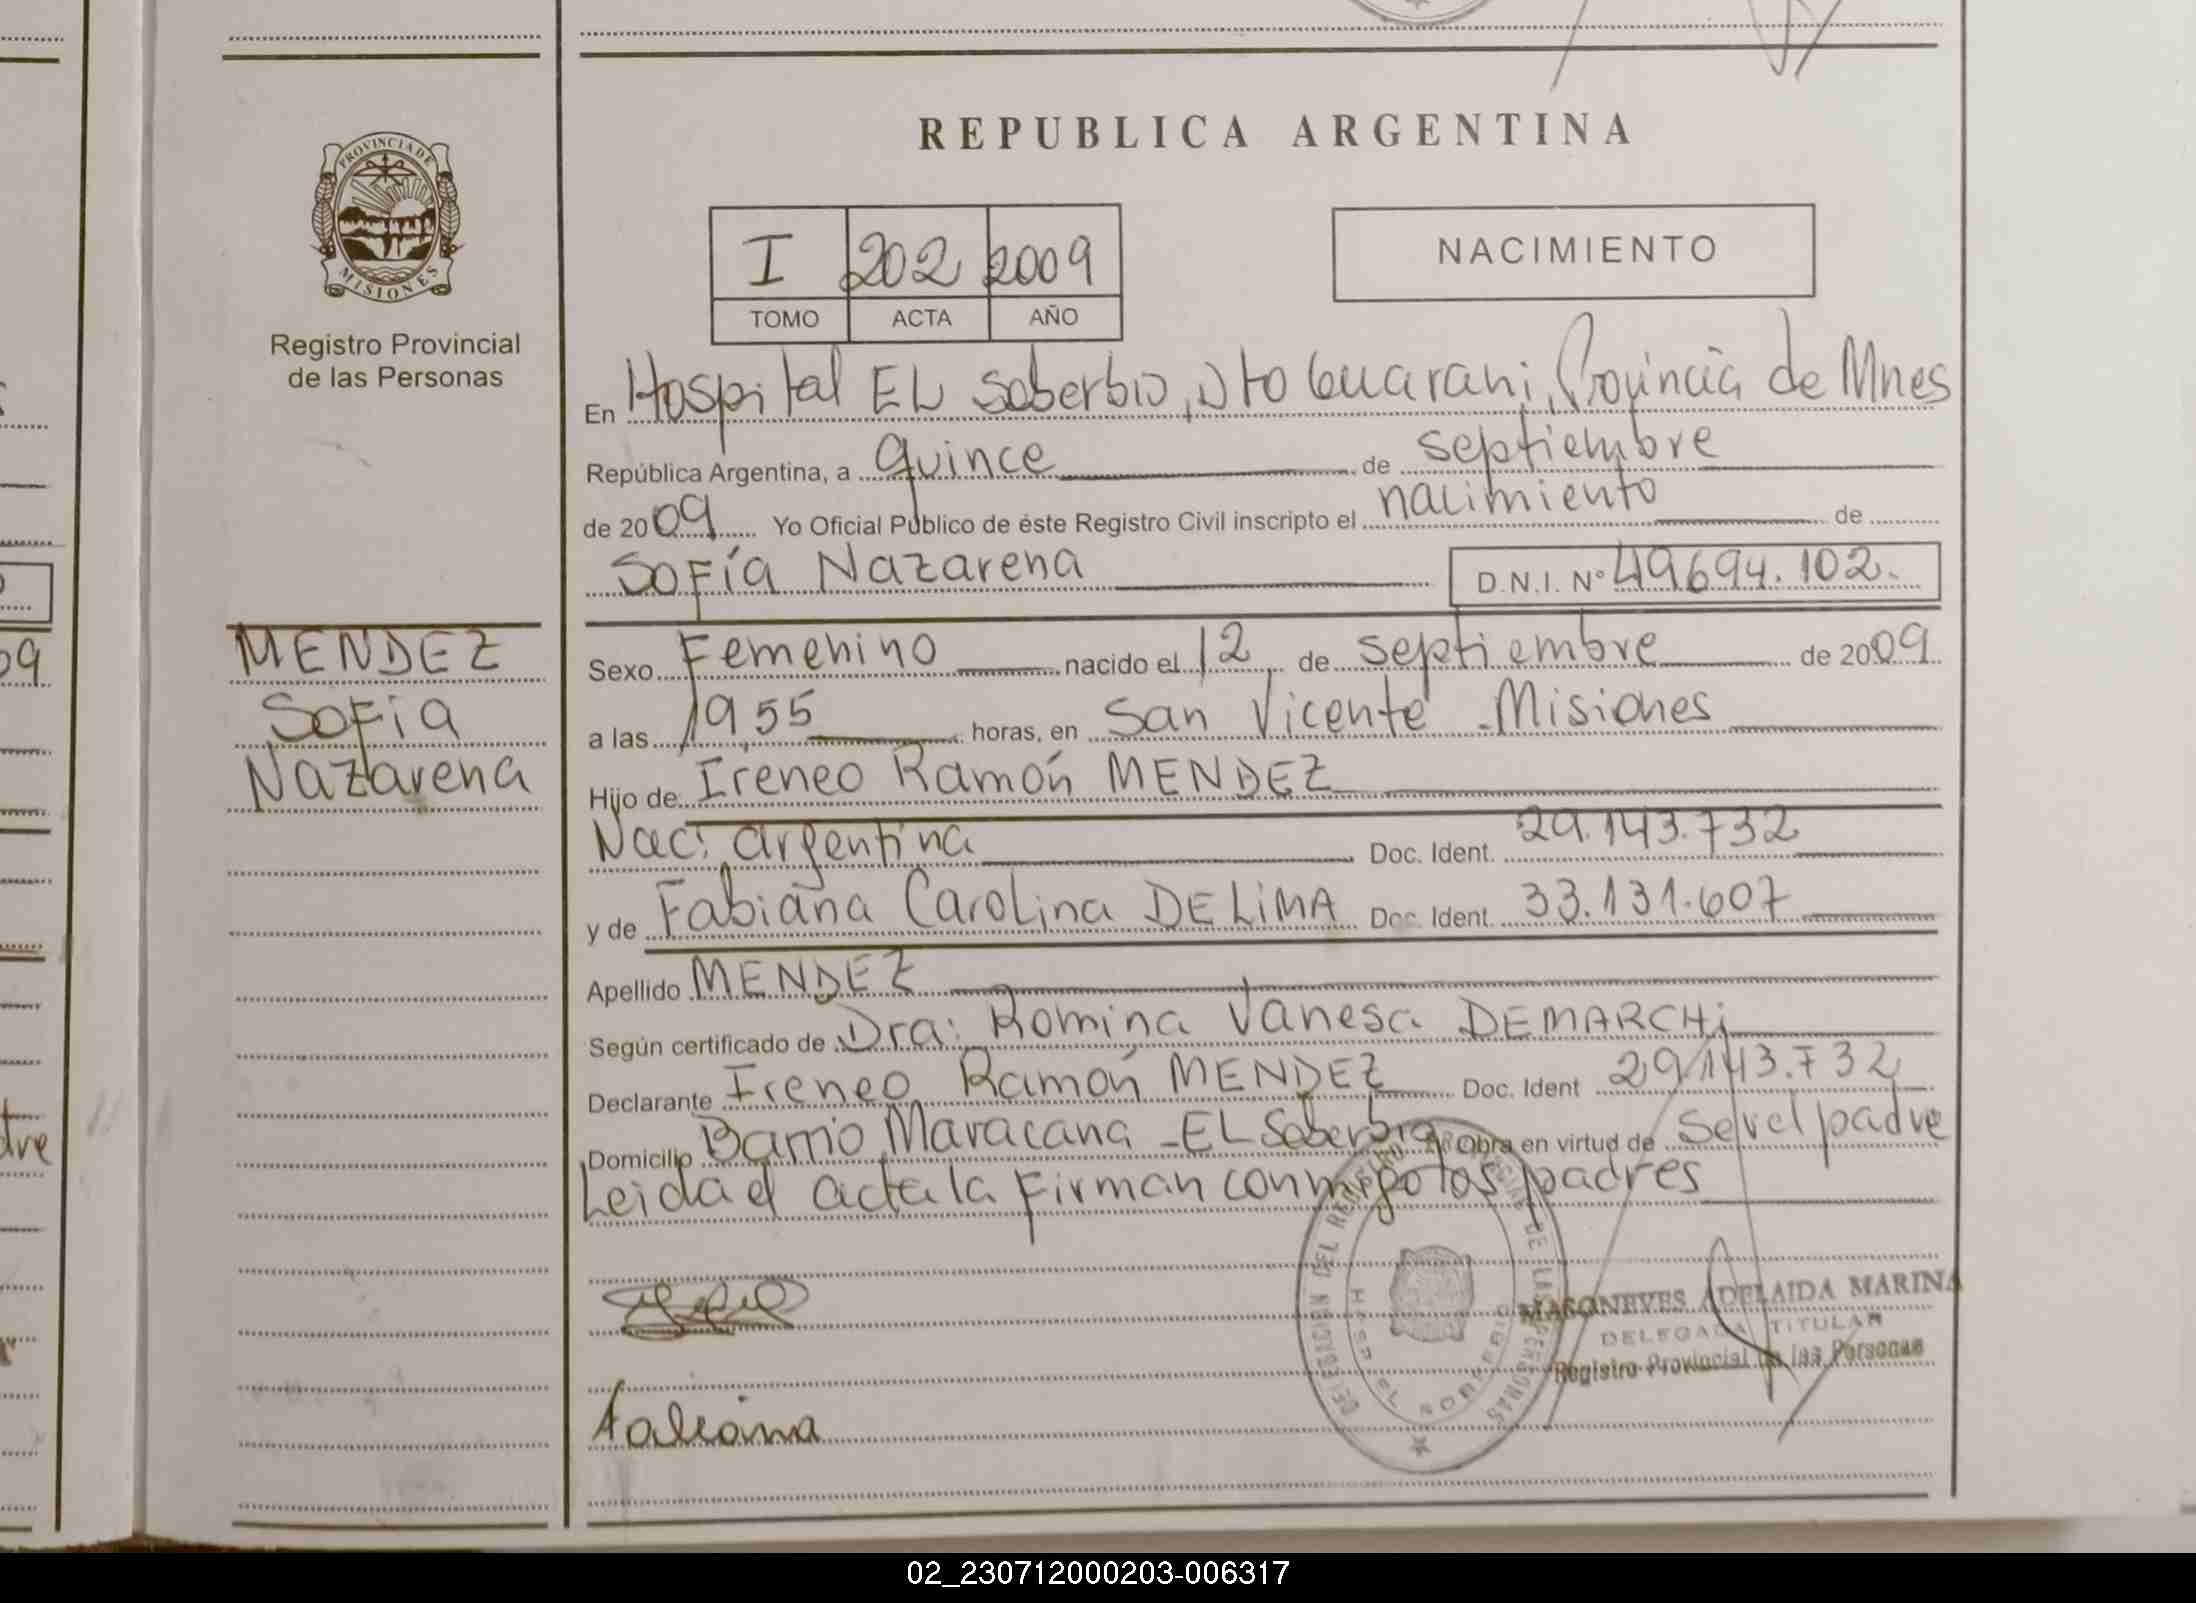 PROVINCIA DE
MISIONES
Registro Provincial
de las Personas
MENDEZ
Sofía
Nazarena
REPUBLICA ARGENTINA
I 202 2009
TOMO ACTA AÑO
NACIMIENTO
En Hospital EL Soberbio, Dto Guarani, Provincia de Mnes
República Argentina, a quince de septiembre
de 2009 Yo Oficial Público de éste Registro Civil inscripto el nacimiento de
Sofía Nazarena D.N.I. Nº 49.694.102.
Sexo Femenino nacido el 12 de septiembre de 2009
a las 19,55 horas, en San Vicente - Misiones
Hijo de Ireneo Ramón MENDEZ
Nac: argentina Doc. Ident. 29.143.732
y de Fabiana Carolina DE LiMA Doc. Ident. 33.131.607
Apellido MENDEZ
Según certificado de Dra: Romina Vanesa DEMARCHi
Declarante Ireneo Ramón MENDEZ Doc. Ident 29.143.732
Domicilio Barrio Maracana - EL Soberbio Obra en virtud de ser el padre
Leida el acta la Firman conmigo los padres
Fabiana
MASONEVES ADELAIDA MARINA
DELEGADA TITULAR
Registro Provincial de las Personas
02_230712000203-006317